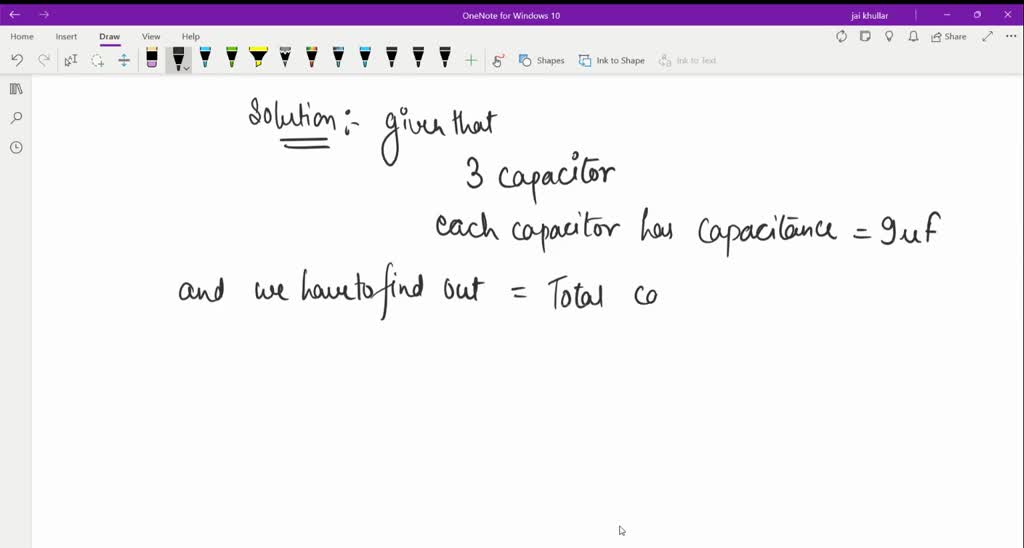 OneNote for Windows 10
jai khullar
Home Insert Draw View Help
Share
Shapes
Ink to Shape
Ink to Text
Solution :- given that
3 capacitor
each capacitor has capacitance = 9uf
and we have to find out = Total co